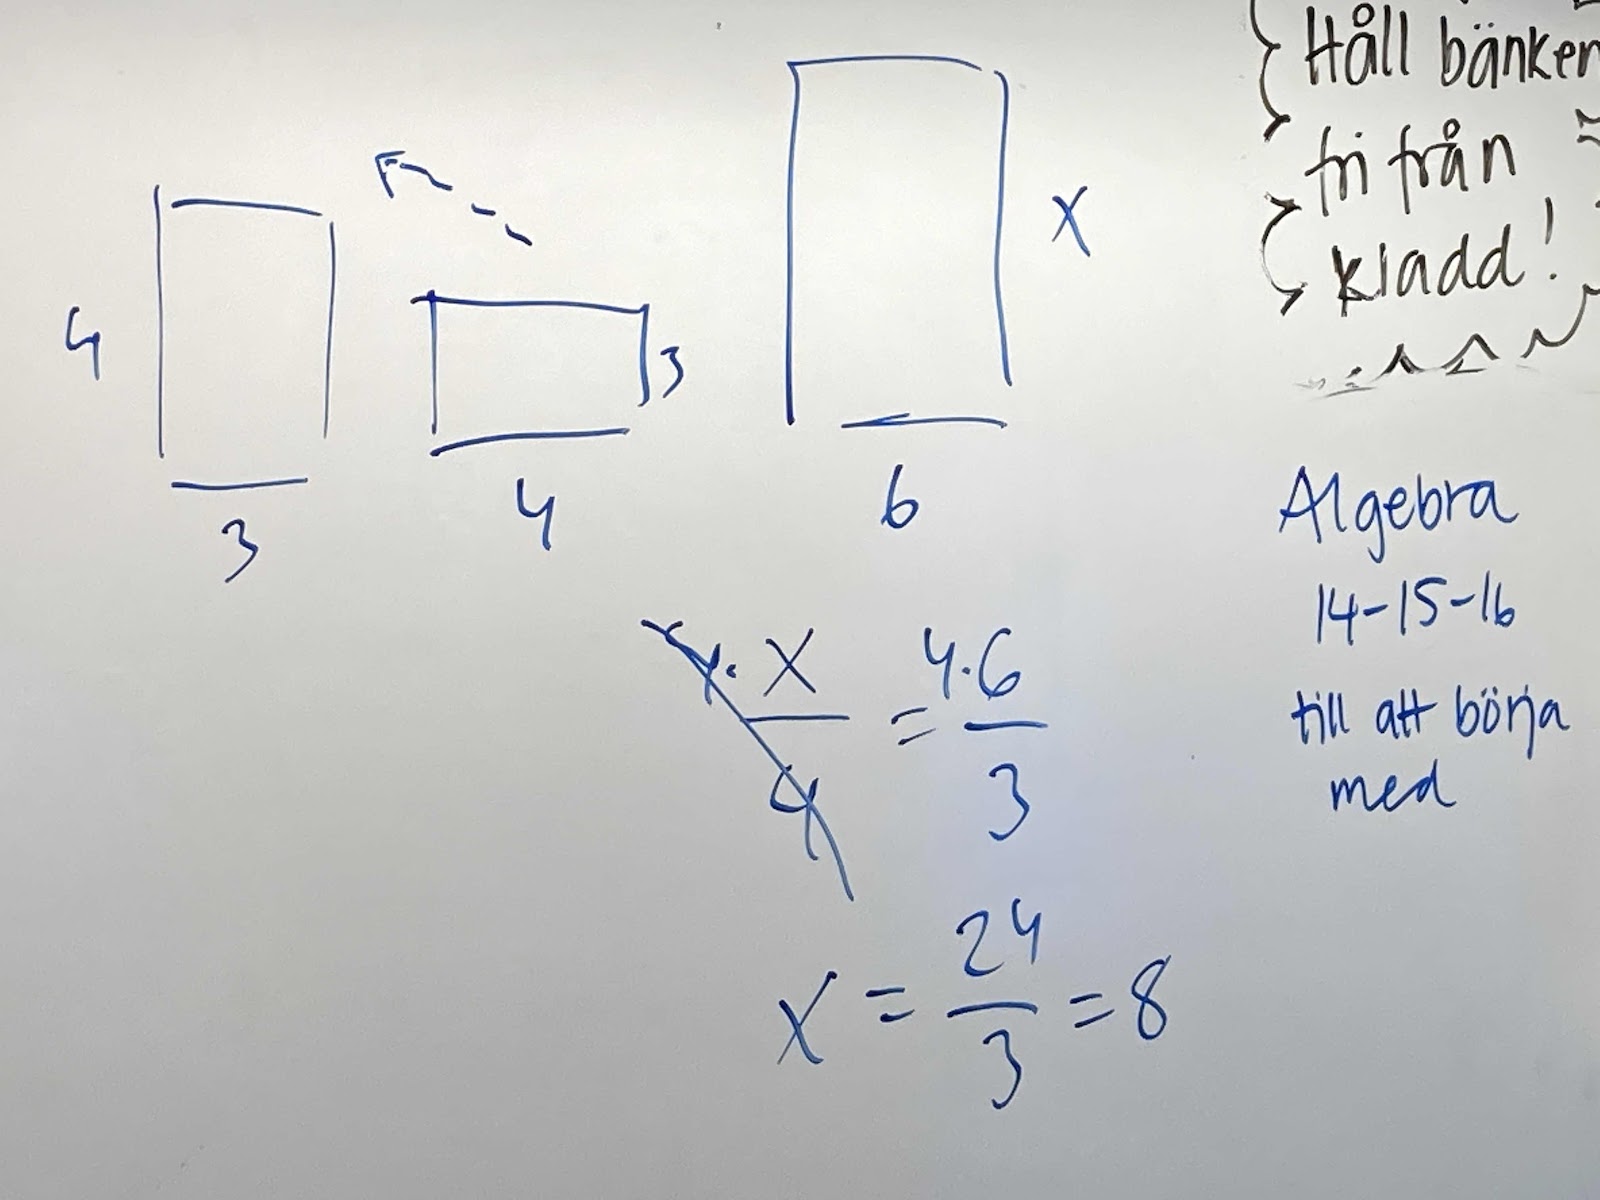 Håll bänken
fri från
kladd!
4
3
3
4
x
6
Algebra
14-15-16
till att börja
med
4· x / 4 = 4·6 / 3
x = 24 / 3 = 8